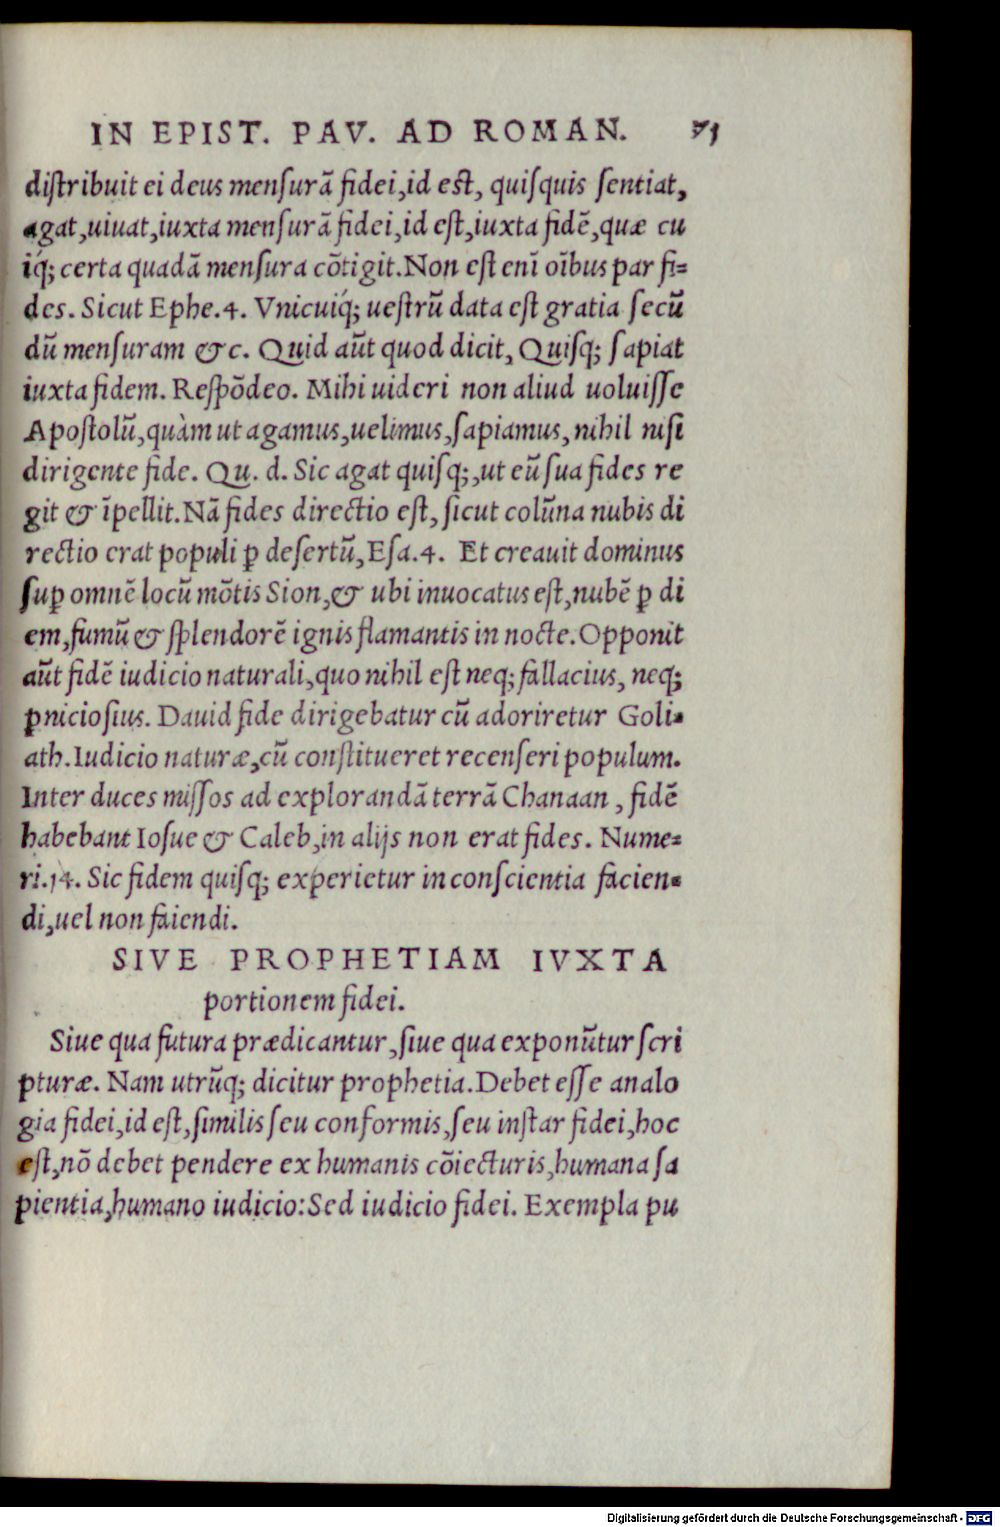 IN EPIST. PAV. AD ROMAN. 71
diſtribuit ei deus menſurã fidei,id eſt, quiſquis ſentiat,
agat,uiuat,iuxta menſurã fidei,id eſt,iuxta fidẽ,quæ cu
iq́; certa quadã menſura cõtigit.Non eſt enĩ oĩbus par fi=
des. Sicut Ephe.4. Vnicuiq́; ueſtrũ data eſt gratia ſecũ
dũ menſuram &c. Quid aũt quod dicit, Quiſq; ſapiat
iuxta fidem. Reſpõdeo. Mihi uideri non aliud uoluiſſe
Apoſtolũ,quàm ut agamus,uelimus,ſapiamus, nihil niſi
dirigente fide. Qu. d. Sic agat quiſq;,ut eũ ſua fides re
git & ĩpellit.Nã fides directio eſt, ſicut colũna nubis di
rectio erat populi ꝑ deſertũ,Eſa.4. Et creauit dominus
ſuꝑ omnẽ locũ mõtis Sion,& ubi inuocatus eſt,nubẽ ꝑ di
em,fumũ & ſplendorẽ ignis flamantis in nocte.Opponit
aũt fidẽ iudicio naturali,quo nihil eſt neq; fallacius, neq;
ꝑnicioſius. Dauid fide dirigebatur cũ adoriretur Goli=
ath.Iudicio naturæ,cũ conſtitueret recenſeri populum.
Inter duces miſſos ad explorandã terrã Chanaan , fidẽ
habebant Ioſue & Caleb,in alijs non erat fides. Nume=
ri.14. Sic fidem quiſq; experietur in conſcientia facien=
di,uel non faiendi.
SIVE PROPHETIAM IVXTA
portionem fidei.
Siue qua futura prædicantur,ſiue qua exponũtur ſcri
pturæ. Nam utrũq; dicitur prophetia.Debet eſſe analo
gia fidei,id eſt,ſimilis ſeu conformis,ſeu inſtar fidei,hoc
eſt,nõ debet pendere ex humanis cõiecturis,humana ſa
pientia,humano iudicio:Sed iudicio fidei. Exempla pu
Digitalisierung gefördert durch die Deutsche Forschungsgemeinschaft - DFG